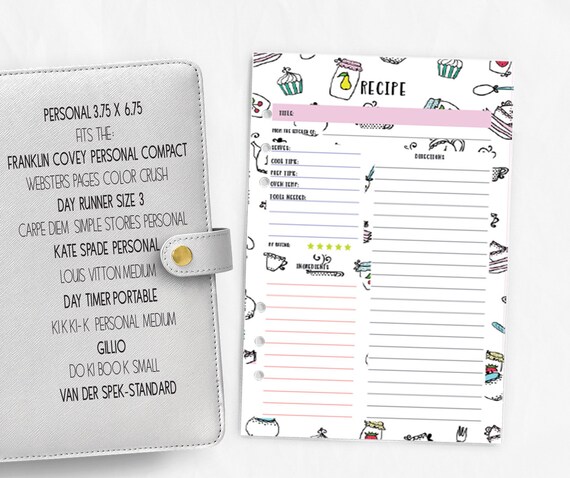 PERSONAL 3.75 X 6.75
FITS THE:
FRANKLIN COVEY PERSONAL COMPACT
WEBSTERS PAGES COLOR CRUSH
DAY RUNNER SIZE 3
CARPE DIEM SIMPLE STORIES PERSONAL
KATE SPADE PERSONAL
LOUIS VITTON MEDIUM
DAY TIMER PORTABLE
KIKKI-K PERSONAL MEDIUM
GILLIO
DOKIBOOK SMALL
VAN DER SPEK-STANDARD
RECIPE
TITLE:
FROM THE KITCHEN OF:
SERVES:
COOK TIME:
PREP TIME:
OVEN TEMP:
TOOLS NEEDED:
MY RATING:
INGREDIENTS
DIRECTIONS